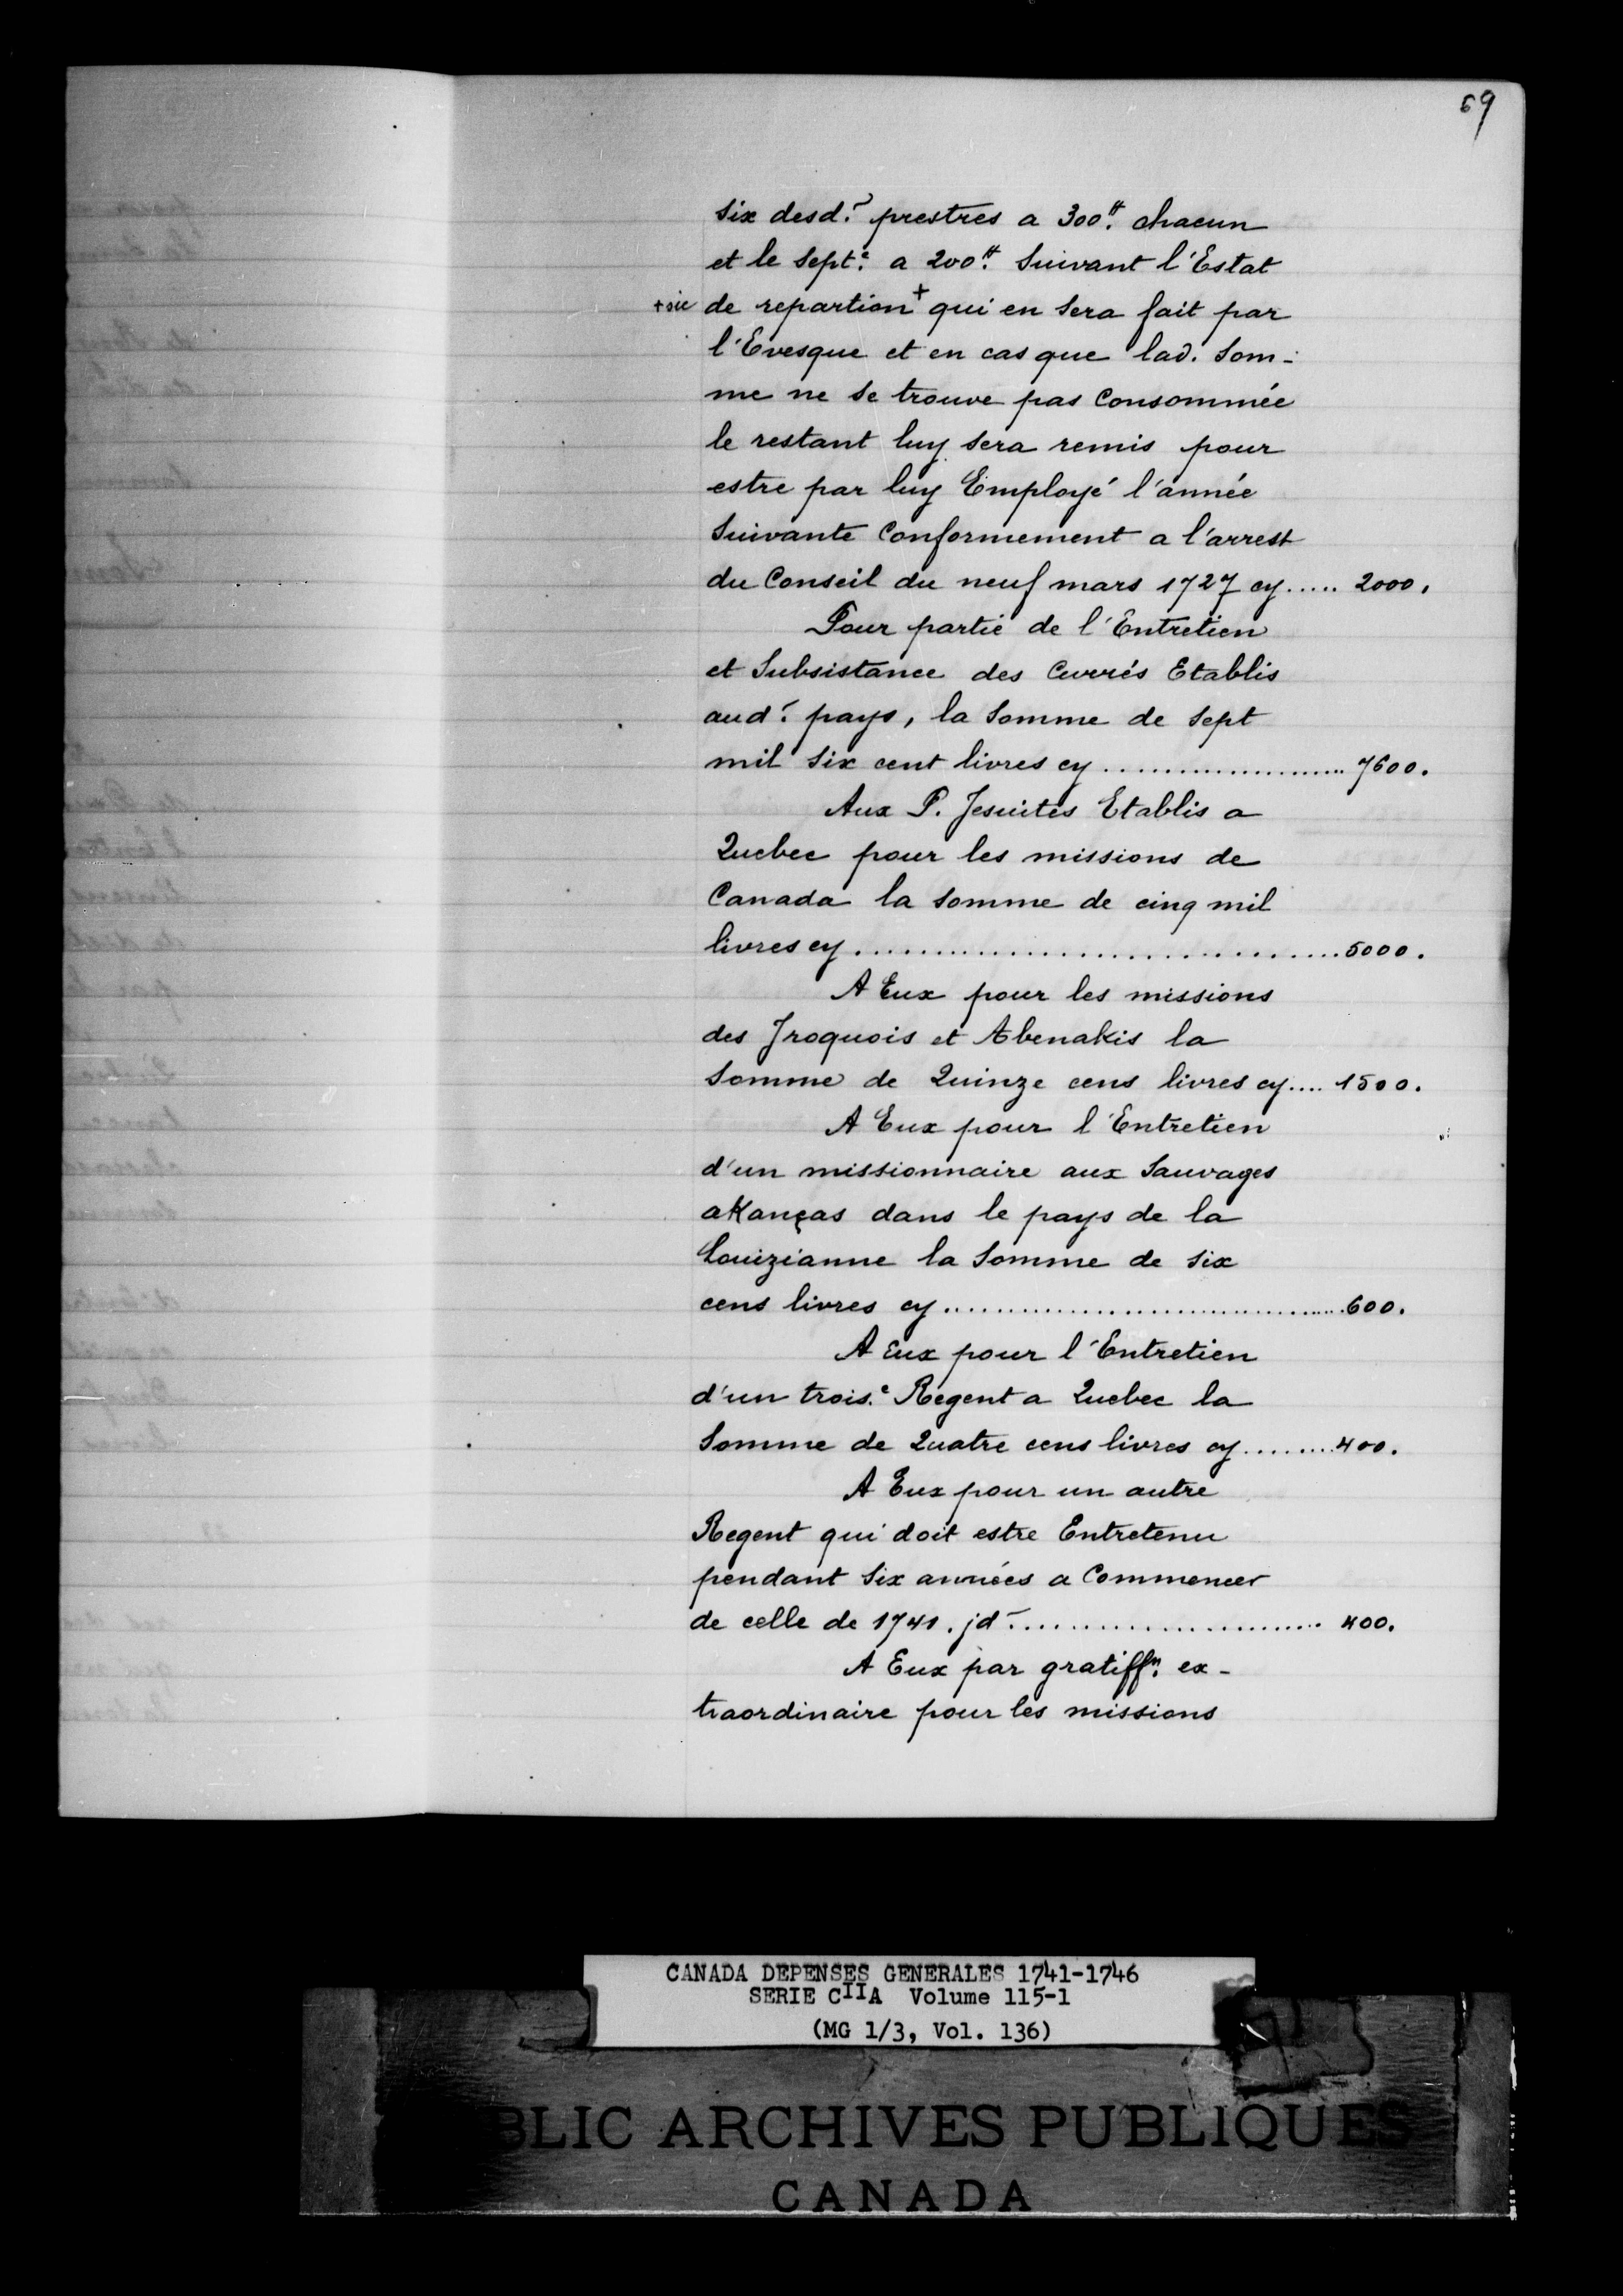 69
six desd.ˢ prestres a 300.ᵗᵗ chacun
et le sept.ᵉ a 200.ᵗᵗ Suivant l'Estat
+sic de repartion⁺ qui en sera fait par
l'Evesque et en cas que lad. Som-
me ne se trouve pas Consommée
le restant luy sera remis pour
estre par luy Employé l'année
Suivante Conformement a l'arrest
du Conseil du neuf mars 1727 cy ..... 2000.
Pour partie de l'Entretien
et Subsistance des Currés Etablis
aud.ᵗ pays, la Somme de Sept
mil Six cent livres cy ..................... 7600.
Aux P. Jesuites Etablis a
Quebec pour les missions de
Canada la somme de cinq mil
livres cy .................................... 5000.
A Eux pour les missions
des Jroquois et Abenakis la
Somme de Quinze cens livres cy.... 1500.
A Eux pour l'Entretien
d'un missionnaire aux Sauvages
aKanças dans le pays de la
Louizianne la Somme de six
cens livres cy .................................. 600.
A Eux pour l'Entretien
d'un trois.ᵉ Regent a Quebec la
Somme de Quatre cens livres cy ........ 400.
A Eux pour un autre
Regent qui doit estre Entretenu
pendant Six années a Commencer
de celle de 1741. jd ....................... 400.
A Eux par gratiff.ⁿ ex-
traordinaire pour les missions
CANADA DEPENSES GENERALES 1741-1746
SERIE CIIA Volume 115-1
(MG 1/3, Vol. 136)
BLIC ARCHIVES PUBLIQUES
CANADA